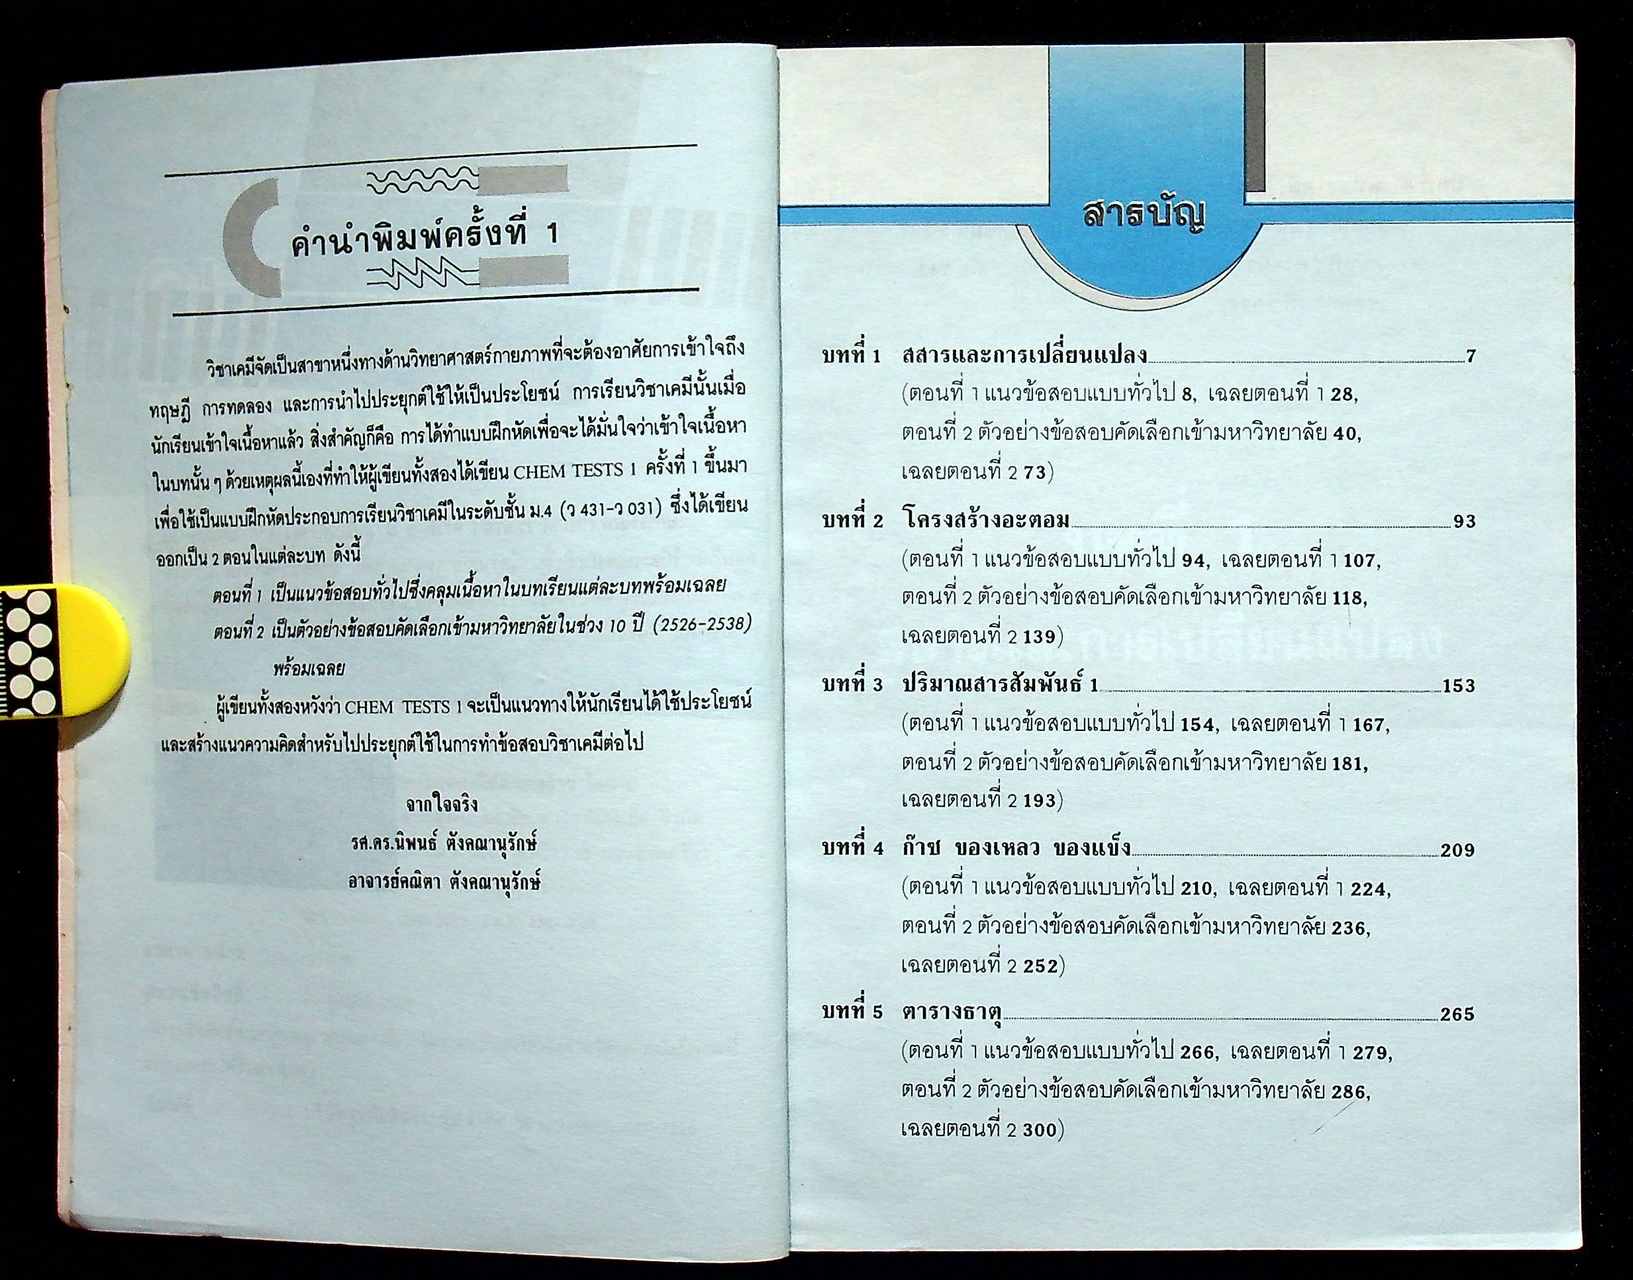 คำนำพิมพ์ครั้งที่ 1
วิชาเคมีจัดเป็นสาขาหนึ่งทางด้านวิทยาศาสตร์กายภาพที่จะต้องอาศัยการเข้าใจถึง
ทฤษฎี การทดลอง และการนำไปประยุกต์ใช้ให้เป็นประโยชน์ การเรียนวิชาเคมีนั้นเมื่อ
นักเรียนเข้าใจเนื้อหาแล้ว สิ่งสำคัญก็คือ การได้ทำแบบฝึกหัดเพื่อจะได้มั่นใจว่าเข้าใจเนื้อหา
ในบทนั้น ๆ ด้วยเหตุผลนี้เองที่ทำให้ผู้เขียนทั้งสองได้เขียน CHEM TESTS 1 ครั้งที่ 1 ขึ้นมา
เพื่อใช้เป็นแบบฝึกหัดประกอบการเรียนวิชาเคมีในระดับชั้น ม.4 (ว 431-ว 031) ซึ่งได้เขียน
ออกเป็น 2 ตอนในแต่ละบท ดังนี้
ตอนที่ 1 เป็นแนวข้อสอบทั่วไปซึ่งคลุมเนื้อหาในบทเรียนแต่ละบทพร้อมเฉลย
ตอนที่ 2 เป็นตัวอย่างข้อสอบคัดเลือกเข้ามหาวิทยาลัยในช่วง 10 ปี (2526-2538)
พร้อมเฉลย
ผู้เขียนทั้งสองหวังว่า CHEM TESTS 1 จะเป็นแนวทางให้นักเรียนได้ใช้ประโยชน์
และสร้างแนวความคิดสำหรับไปประยุกต์ใช้ในการทำข้อสอบวิชาเคมีต่อไป
จากใจจริง
รศ.ดร.นิพนธ์ ตังคณานุรักษ์
อาจารย์คณิตา ตังคณานุรักษ์
สารบัญ
บทที่ 1 สสารและการเปลี่ยนแปลง 7
(ตอนที่ 1 แนวข้อสอบแบบทั่วไป 8, เฉลยตอนที่ 1 28,
ตอนที่ 2 ตัวอย่างข้อสอบคัดเลือกเข้ามหาวิทยาลัย 40,
เฉลยตอนที่ 2 73)
บทที่ 2 โครงสร้างอะตอม 93
(ตอนที่ 1 แนวข้อสอบแบบทั่วไป 94, เฉลยตอนที่ 1 107,
ตอนที่ 2 ตัวอย่างข้อสอบคัดเลือกเข้ามหาวิทยาลัย 118,
เฉลยตอนที่ 2 139)
บทที่ 3 ปริมาณสารสัมพันธ์ 1 153
(ตอนที่ 1 แนวข้อสอบแบบทั่วไป 154, เฉลยตอนที่ 1 167,
ตอนที่ 2 ตัวอย่างข้อสอบคัดเลือกเข้ามหาวิทยาลัย 181,
เฉลยตอนที่ 2 193)
บทที่ 4 ก๊าซ ของเหลว ของแข็ง 209
(ตอนที่ 1 แนวข้อสอบแบบทั่วไป 210, เฉลยตอนที่ 1 224,
ตอนที่ 2 ตัวอย่างข้อสอบคัดเลือกเข้ามหาวิทยาลัย 236,
เฉลยตอนที่ 2 252)
บทที่ 5 ตารางธาตุ 265
(ตอนที่ 1 แนวข้อสอบแบบทั่วไป 266, เฉลยตอนที่ 1 279,
ตอนที่ 2 ตัวอย่างข้อสอบคัดเลือกเข้ามหาวิทยาลัย 286,
เฉลยตอนที่ 2 300)